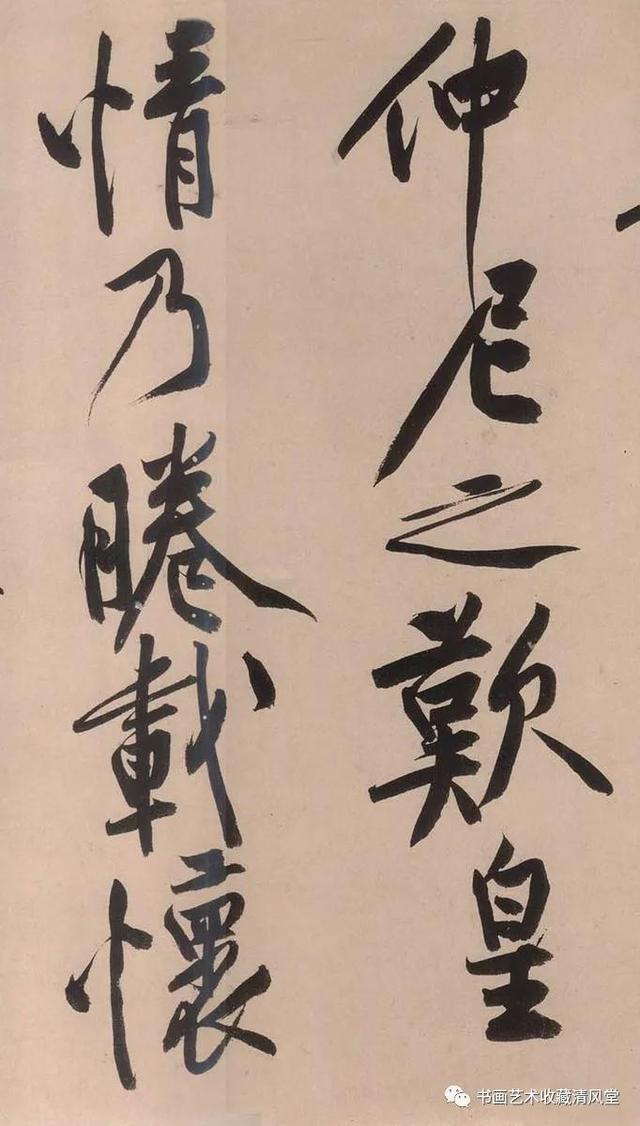 仲尼之歎皇
情乃睠載懷
书画艺术收藏清风堂